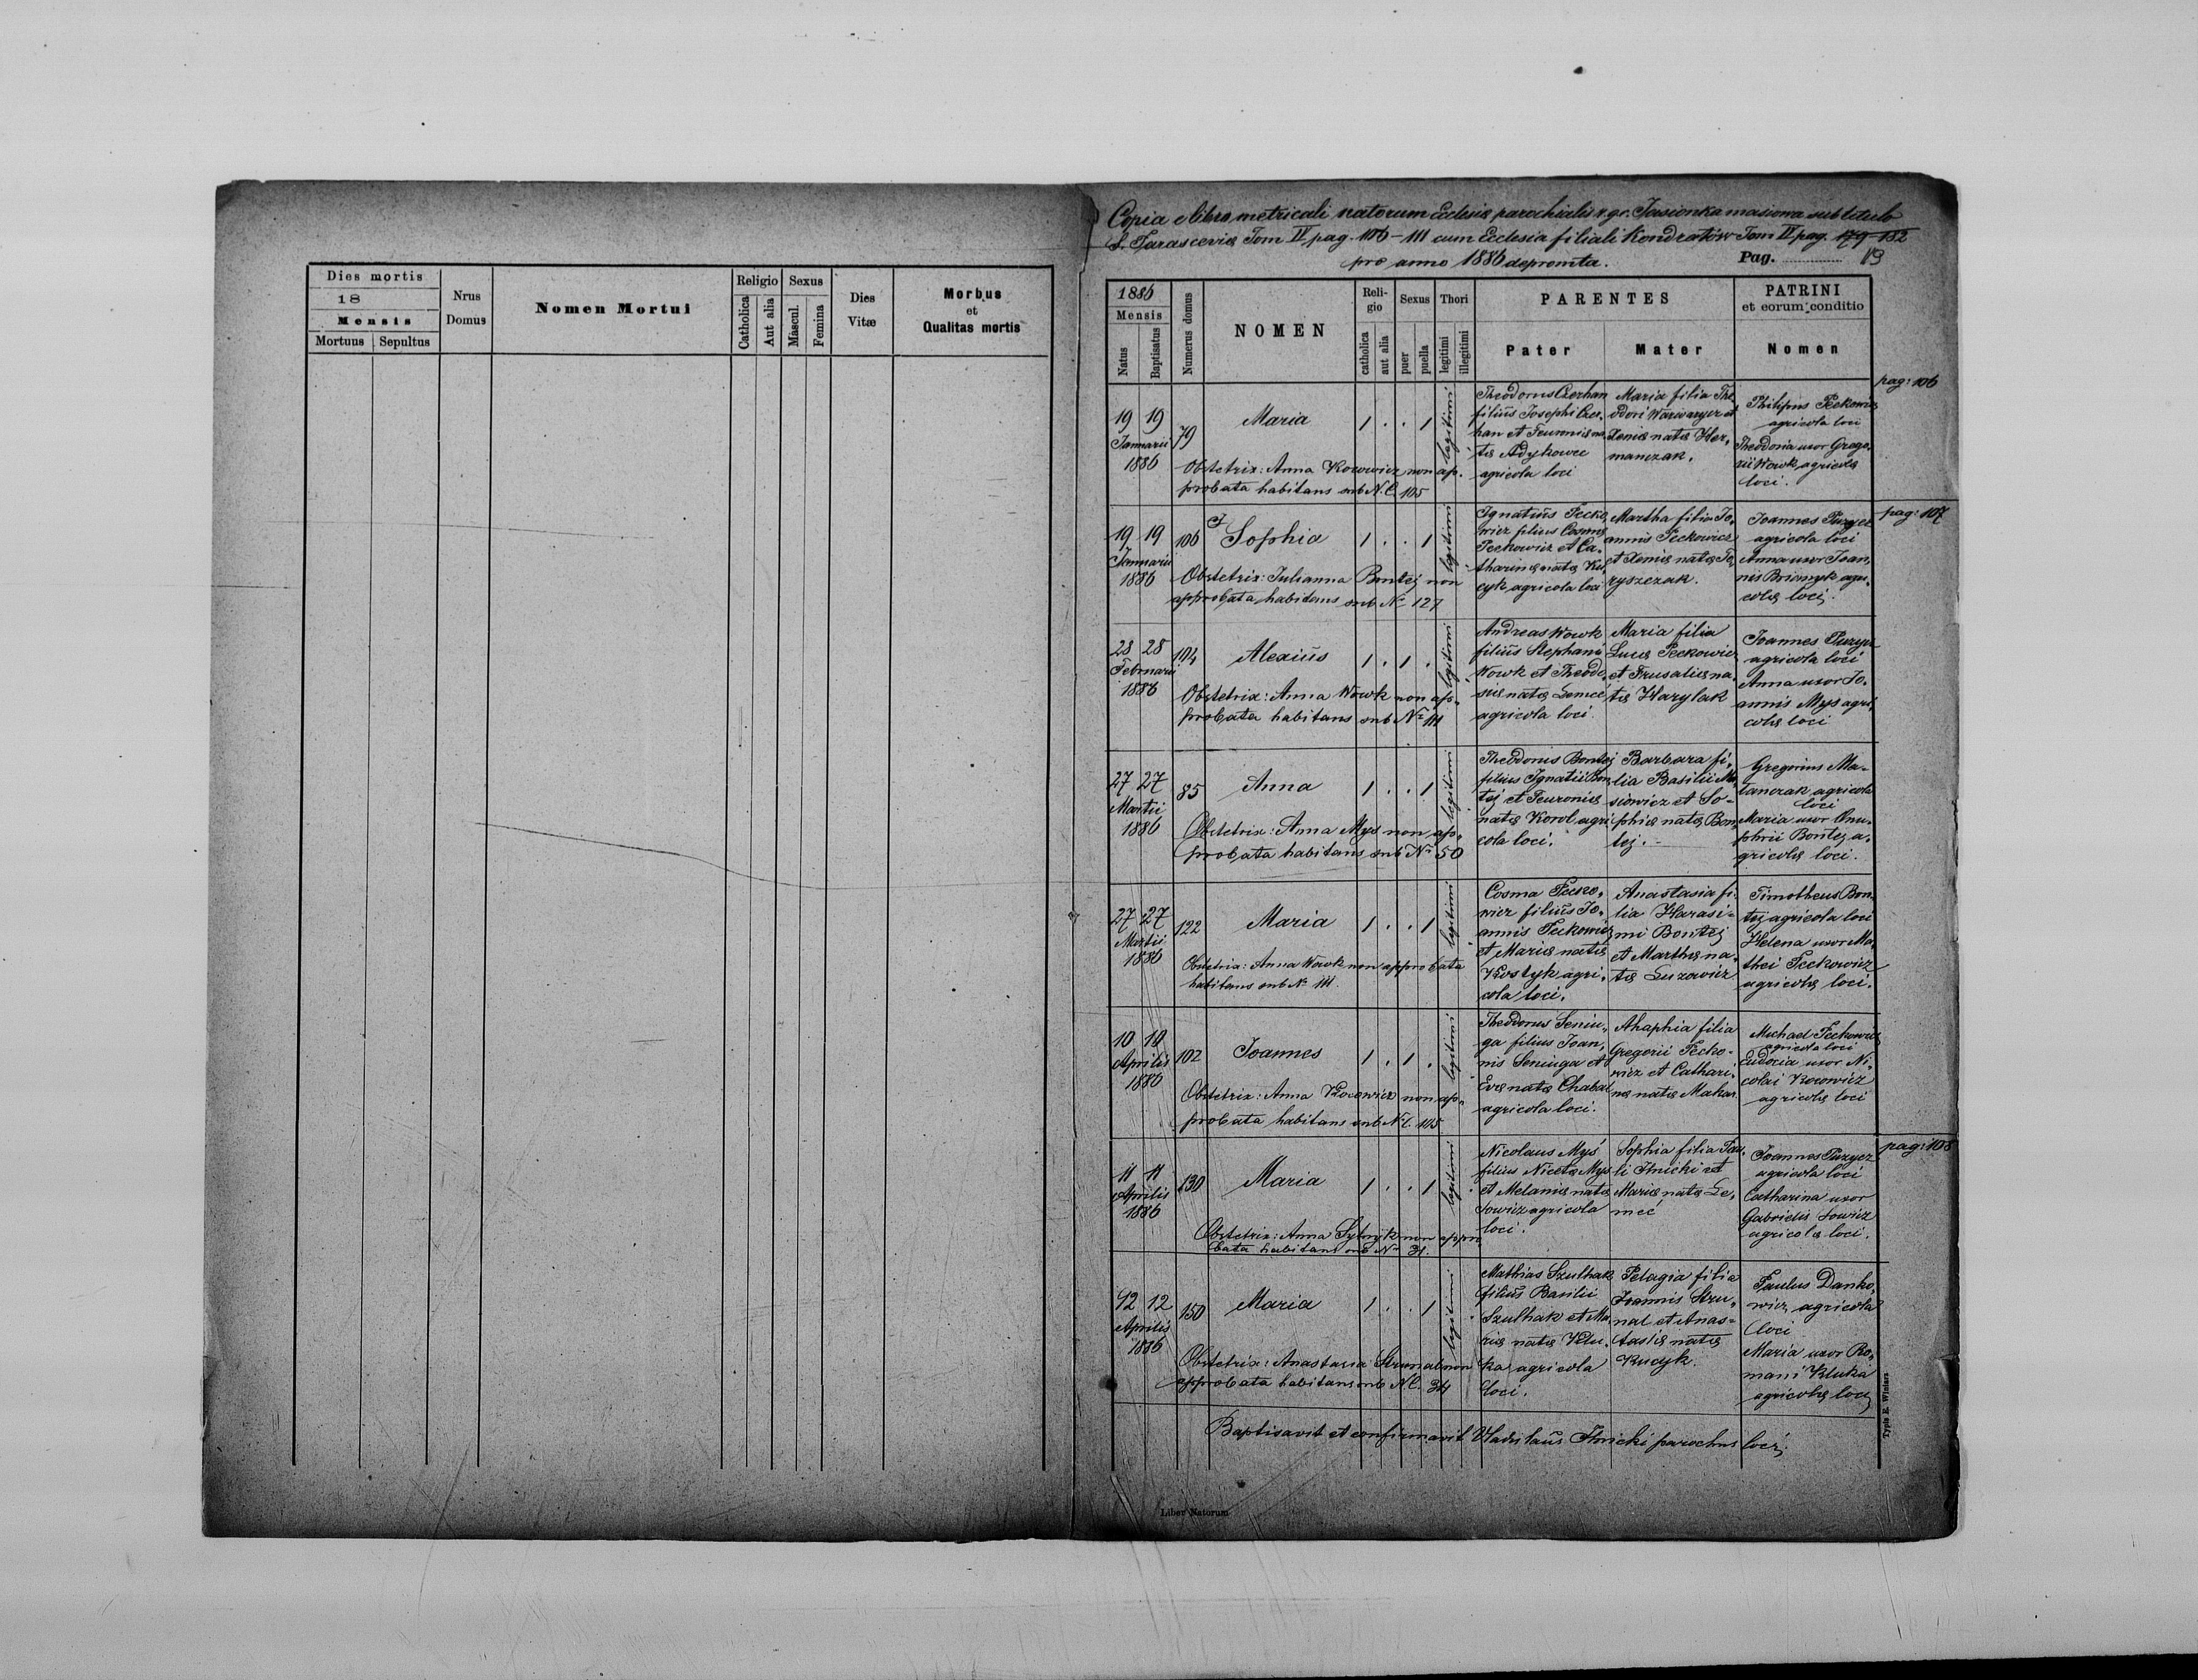 Dies mortis
18
Mensis
Mortuus Sepultus
Nrus
Domus
Nomen Mortui
Religio
Catholica
Aut alia
Sexus
Mascul.
Femina
Dies
Vitæ
Morbus
et
Qualitas mortis
Copia e libro metricali natorum Ecclesiæ parochialis r. gr. Jasionka masiowa sub titulo
S. Parascevia Tom IV pag. 106-111 cum Ecclesia filiali Kondratów Tom II pag. 179-182
pro anno 1886 depromta.
Pag. 13
1886
Mensis
Natus
Baptisatus
Numerus domus
NOMEN
Reli-
gio
catholica
aut alia
Sexus
puer
puella
Thori
legitimi
illegitimi
PARENTES
Pater
Mater
PATRINI
et eorum conditio
Nomen
pag: 106
19 19
Januarii
1886
79
Maria
1 . . 1
legitimi
Obstetrix: Anna Kocowicz non ap-
probata habitans sub N.C. 105
Theodorus
filius Josephi
han et
tis
agricola loci
Maria filia The
odori
Xeniæ natæ Her-
manczak.
Philipus Peckowicz
agricola loci
Theodosia uxor Grego-
rii Wowk agricolæ
loci.
pag: 107
19 19
Januarii
1886
106
Sophia
1 . . 1
legitimi
Obstetrix: Julianna Bontej non
approbata habitans sub N. 127
Ignatius Pecko-
wicz filius Cosmæ
Peckowicz et Ca-
tharinæ natæ
cyk agricola loci
Martha filia Jo-
annis Peckowicz
et Xeniæ natæ
ryszczak.
Joannes Puzycz
agricola loci
Anna uxor Joan-
nis agri-
colæ loci.
28 28
Februarii
1886
104
Alexius
1 . 1 .
legitimi
Obstetrix: Anna Wowk non ap-
probata habitans sub N. 111
Andreas Wowk
filius Stephani
Wowk et Theodo-
siæ natæ Lemeć
agricola loci
Maria filia
Lucæ Peckowicz
et na-
tæ Harylak
Joannes Puzycz
agricola loci
Anna uxor Jo-
annis Mys agri-
colæ loci
27 27
Martii
1886
85
Anna
1 . . 1
legitimi
Obstetrix: Anna Mys non ap-
probata habitans sub N. 50
Theodorus Bontej
filius Ignatii Bon-
tej et Feuroniæ
natæ Korol agri-
cola loci.
Barbara fi-
lia Basilii Ma-
siowicz et So-
phiæ natæ Bon-
tej.
Gregorius Ma-
tanczak agricola
loci
Maria uxor Onu-
phrii Bontej a-
gricolæ loci.
27 27
Martii
1886
122
Maria
1 . . 1
legitimi
Obstetrix: Anna Wowk non approbata
habitans sub N. 111.
Cosma Pecko-
wicz filius Jo-
annis Peckowicz
et Mariæ natæ
Kostyk agri-
cola loci.
Anastasia fi-
lia Harasi-
mi Bontej
et Marthæ na-
tæ Luzowicz
Timotheus Bon-
tej agricola loci
Helena uxor Ma-
thei Peckowicz
agricolæ loci.
10 10
Aprilis
1886
102
Joannes
1 . 1 .
legitimi
Obstetrix: Anna Kocowicz non ap-
probata habitans sub N.C. 105
Theodorus Seniu-
ga filius Joan-
nis Seniuga et
Evæ natæ Chabal
agricola loci.
Ahaphia filia
Gregorii Pecko-
wicz et Cathari-
næ natæ Makar.
Michael Peckowicz
agricola loci
Eudocia uxor Ni-
colai Kocowicz
agricolæ loci
pag: 108
11 11
Aprilis
1886
130
Maria
1 . . 1
legitimi
Obstetrix: Anna Sytnyk non appro
bata habitans sub N. 31.
Nicolaus Myś
filius Nicetæ Mys
et Melaniæ natæ
Sowicz agricola
loci.
Sophia filia Pau-
li Ilnicki et
Mariæ natæ Le-
meć
Joannes Puzycz
agricola loci
Catharina uxor
Gabrielis Sowicz
agricolæ loci.
12 12
Aprilis
1886
150
Maria
1 . . 1
legitimi
Obstetrix: Anastasia Strunal non
approbata habitans sub N.C. 34
Mathias Szulhak
filius Basilii
Szulhak et Ma-
riæ natæ Klu-
ka agricola
loci.
Pelagia filia
Joannis Stru-
nal et Anas-
tasiæ natæ
Kucyk.
Paulus Danko-
wicz agricola
loci
Maria uxor Ro-
mani Kluka
agricolæ loci
Baptisavit et confirmavit Vladislaus Ilnicki parochus loci.
Typis E. Winiarz
Liber Natorum